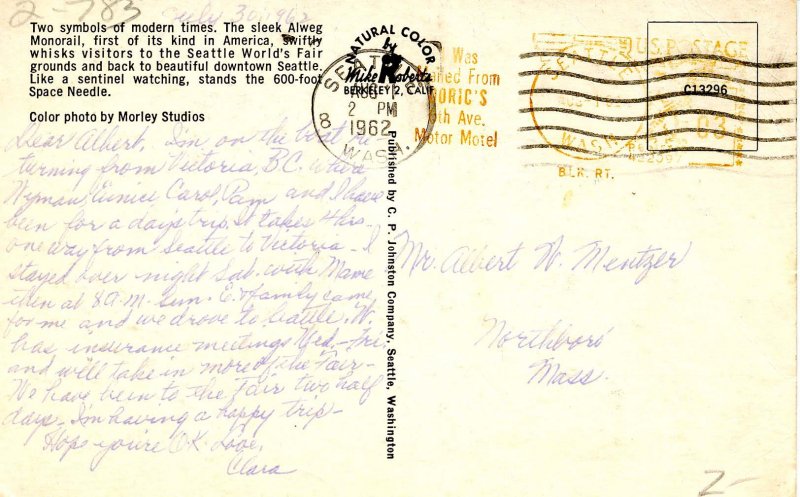 2-783
July 30, 1962
Two symbols of modern times. The sleek Alweg
Monorail, first of its kind in America, swiftly
whisks visitors to the Seattle World's Fair
grounds and back to beautiful downtown Seattle.
Like a sentinel watching, stands the 600-foot
Space Needle.
Color photo by Morley Studios
Dear Albert, I'm on the boat re-
turning from Victoria, B.C. where
Wyman, Eunice Carol, Pam and I have
been for a days trip. It takes 4 hrs.
one way from Seattle to Victoria - I
stayed over night Sat. with Mame
then at 8 A.M. Sun. E. & family came
for me and we drove to Seattle. W.
has insurance meetings Wed. - Fri.
and will take in more of the Fair -
We have been to the Fair two half
days - I'm having a happy trip -
Hope you're O.K. Love,
Clara
NATURAL COLOR
Mike Roberts
BERKELEY 2, CALIF
SEATTLE
AUG 1
2 PM
8 1962
WASH.
Was
Mailed From
th Ave.
Motor Motel
Published by C. P. Johnston Company, Seattle, Washington
U.S. POSTAGE
SEATTLE
WASH.
03
C13296
BLK. RT.
Mr. Albert W. Mentzer
Northboro
Mass.
2-